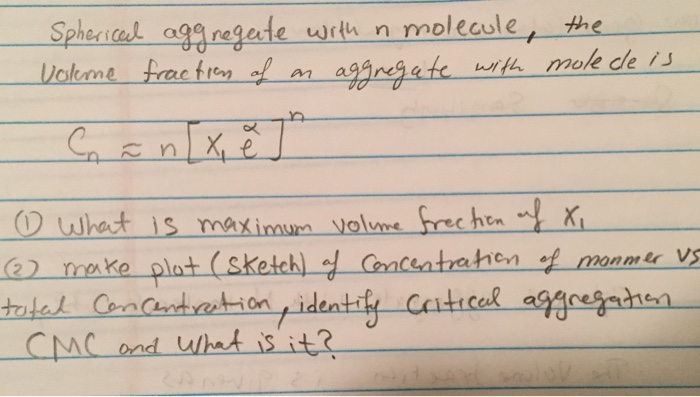 Spherical aggregate with n molecule, the
Volume fraction of an aggregate with molecle is
Cn ≈ n[X₁ e^α]^n
① What is maximum volume frection of X₁
(2) make plot (sketch) of Concentration of monmer vs
total Concentration, identify critical aggregation
CMC and What is it?